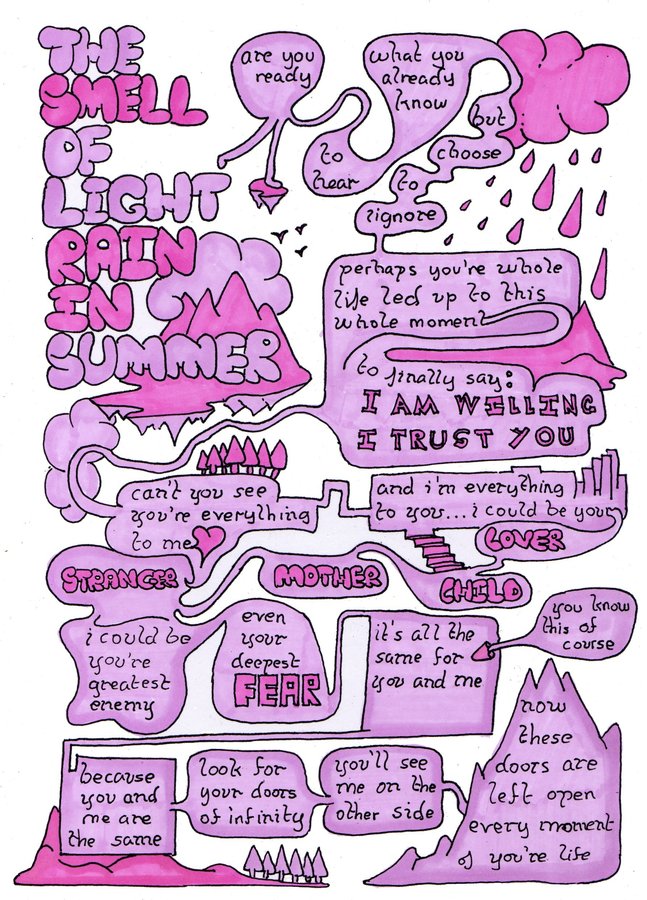 THE
SMELL
OF
LIGHT
RAIN
IN
SUMMER
are you
ready
to
hear
what you
already
know
but
choose
to
ignore
perhaps you're whole
life led up to this
whole moment
to finally say:
I AM WILLING
I TRUST YOU
can't you see
you're everything
to me
and i'm everything
to you... i could be your
LOVER
CHILD
MOTHER
STRANGER
i could be
you're
greatest
enemy
even
your
deepest
FEAR
it's all the
same for
you and me
you know
this of
course
because
you and
me are
the same
look for
your doors
of infinity
you'll see
me on the
other side
now
these
doors are
left open
every moment
of you're life